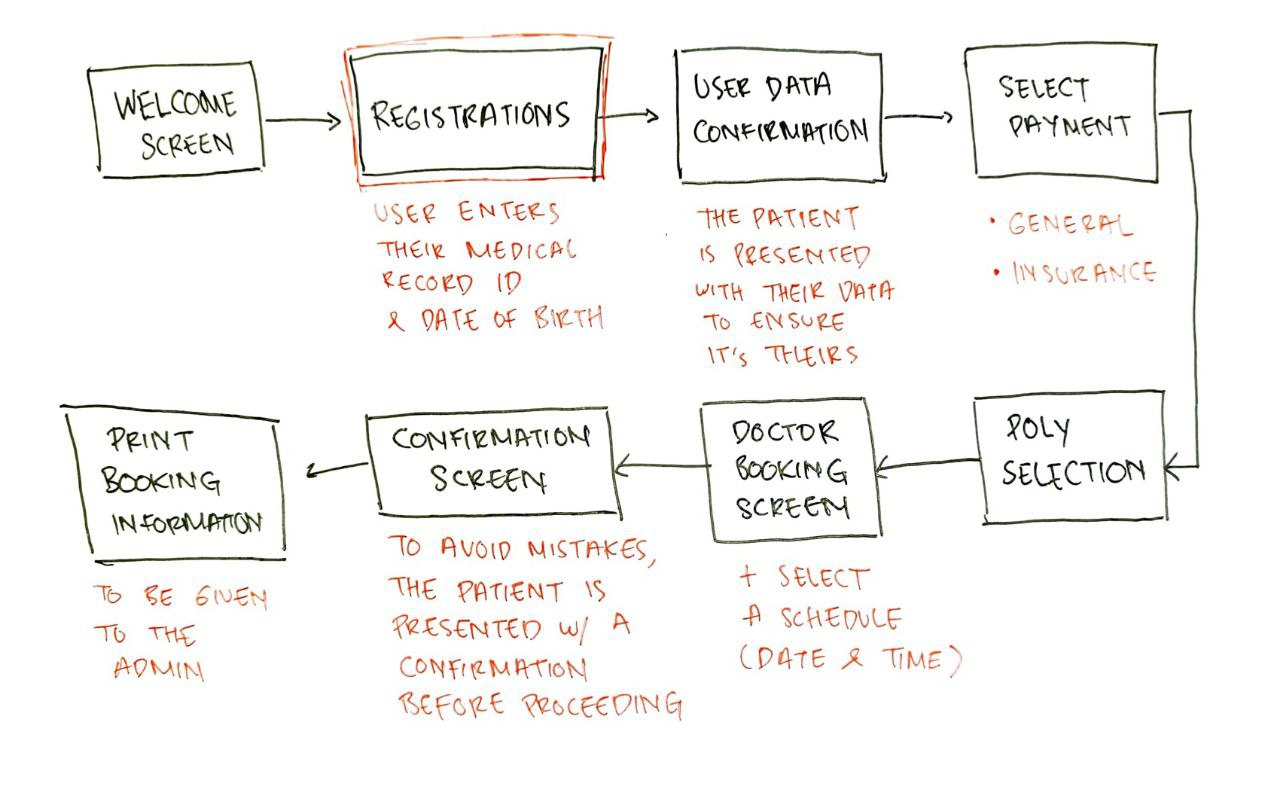 WELCOME
SCREEN
REGISTRATIONS
USER ENTERS
THEIR MEDICAL
RECORD ID
& DATE OF BIRTH
USER DATA
CONFIRMATION
THE PATIENT
IS PRESENTED
WITH THEIR DATA
TO ENSURE
IT'S THEIRS
SELECT
PAYMENT
• GENERAL
• INSURANCE
POLY
SELECTION
DOCTOR
BOOKING
SCREEN
+ SELECT
A SCHEDULE
(DATE & TIME)
CONFIRMATION
SCREEN
TO AVOID MISTAKES,
THE PATIENT IS
PRESENTED W/ A
CONFIRMATION
BEFORE PROCEEDING
PRINT
BOOKING
INFORMATION
TO BE GIVEN
TO THE
ADMIN